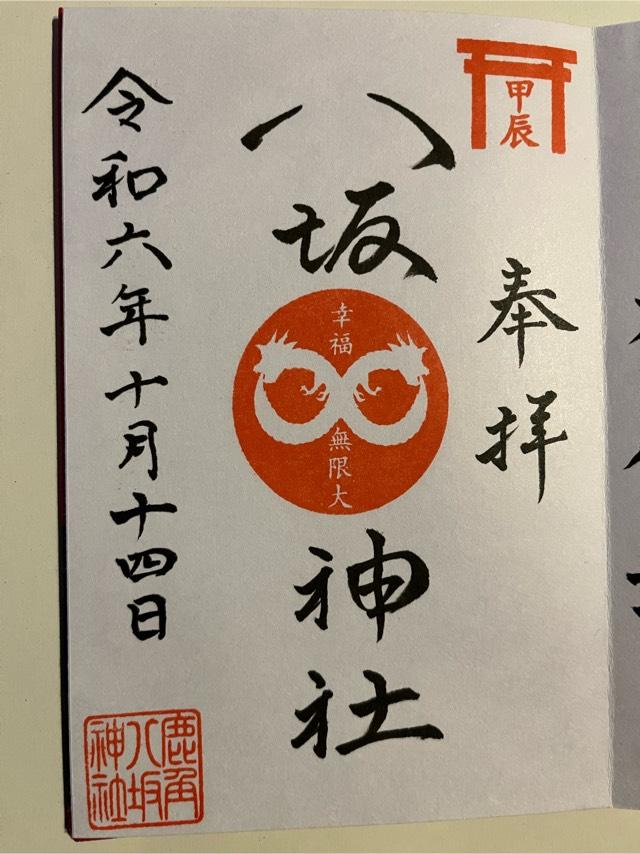 甲辰
奉拝
八坂神社
幸福
無限大
令和六年十月十四日
鹿角
八坂
神社